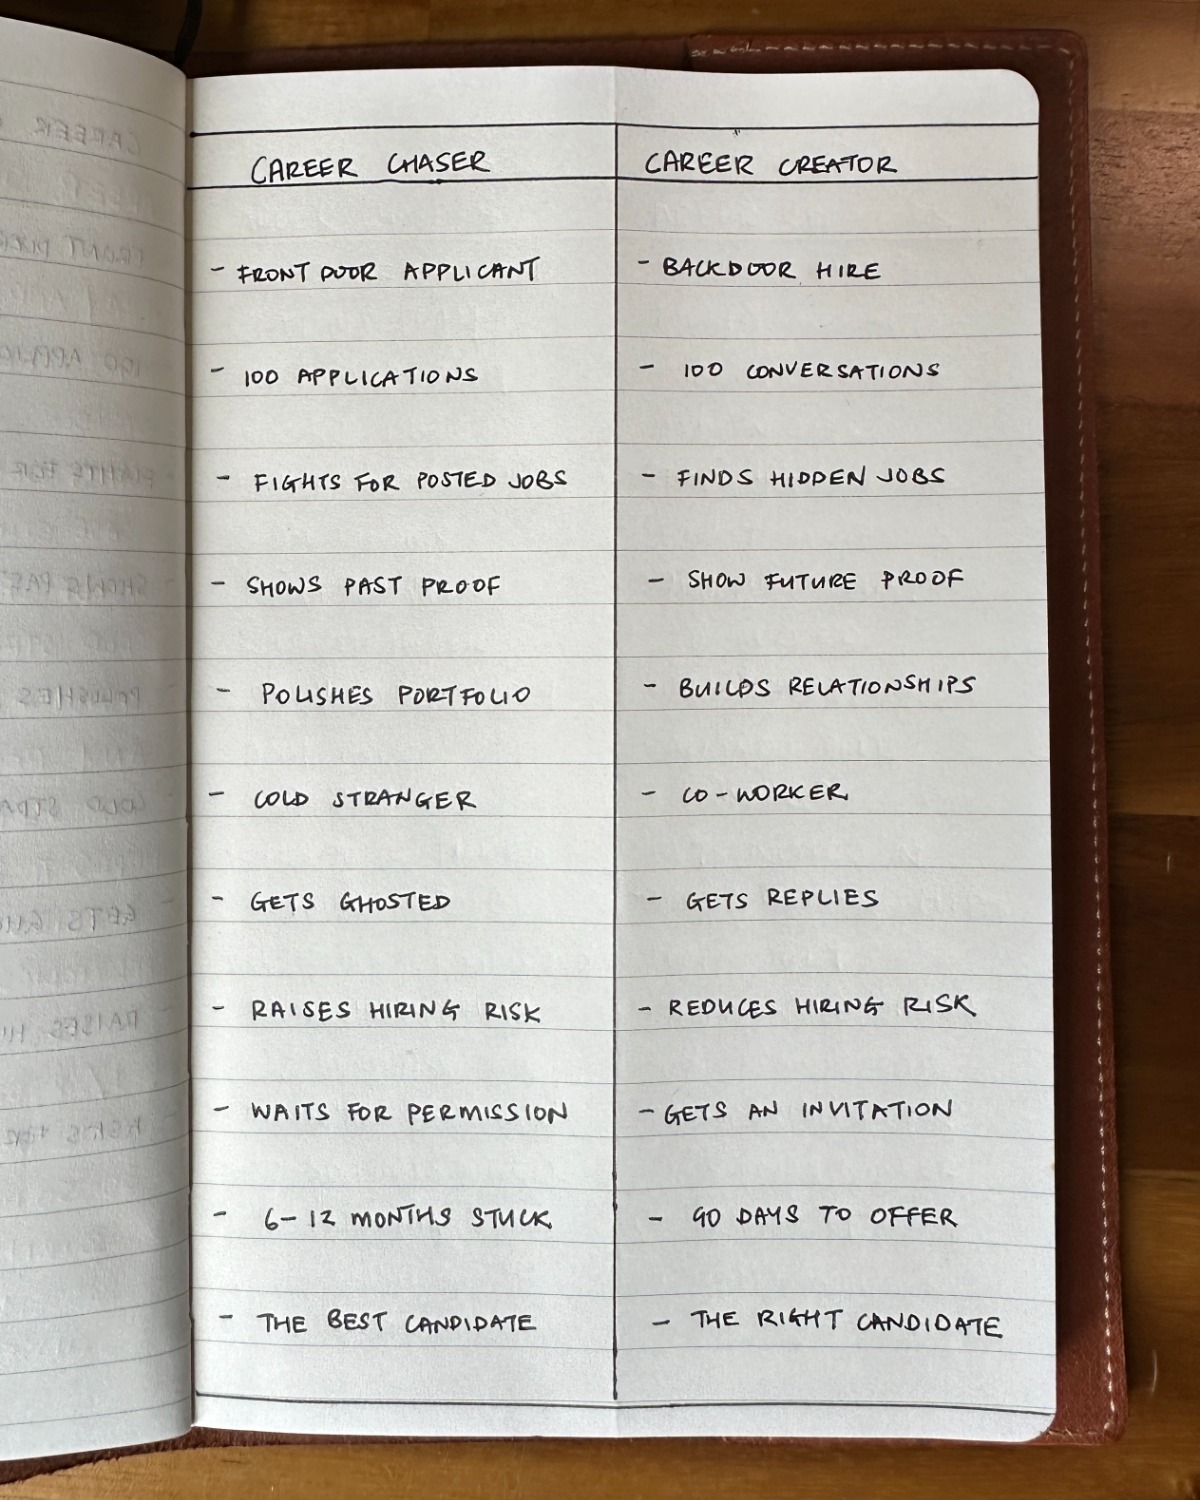 CAREER CHASER
CAREER CREATOR
- FRONT DOOR APPLICANT
- BACKDOOR HIRE
- 100 APPLICATIONS
- 100 CONVERSATIONS
- FIGHTS FOR POSTED JOBS
- FINDS HIDDEN JOBS
- SHOWS PAST PROOF
- SHOW FUTURE PROOF
- POLISHES PORTFOLIO
- BUILDS RELATIONSHIPS
- COLD STRANGER
- CO-WORKER
- GETS GHOSTED
- GETS REPLIES
- RAISES HIRING RISK
- REDUCES HIRING RISK
- WAITS FOR PERMISSION
- GETS AN INVITATION
- 6-12 MONTHS STUCK
- 90 DAYS TO OFFER
- THE BEST CANDIDATE
- THE RIGHT CANDIDATE